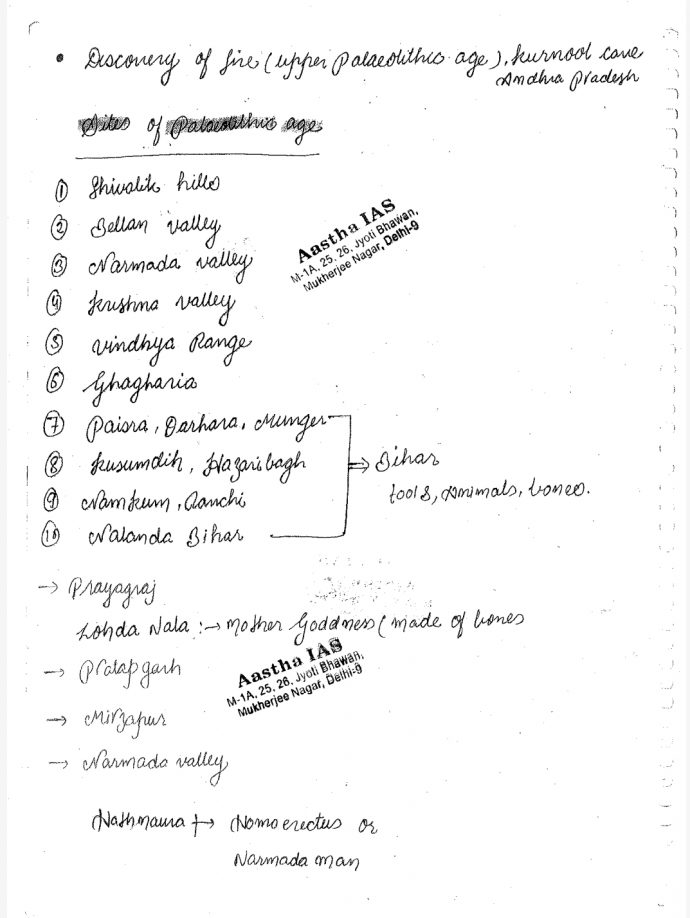 • Discovery of fire (upper palaeolithic age), kurnool cave
Andhra Pradesh
Sites of Palaeolithic age
① Shivalik hills
② Bellan valley
③ Narmada valley
④ Krushna valley
⑤ Vindhya Range
⑥ Ghagharia
⑦ Paisra, Darhara, Munger
⑧ Kusumdih, Hazaribagh
⑨ Namkum, Ranchi
⑩ Nalanda Bihar
⇒ Bihar
tools, Animals, bones.
Aastha IAS
M-1A, 25, 26, Jyoti Bhawan,
Mukherjee Nagar, Delhi-9
→ Prayagraj
Lohda Nala :→ mother Goddness (made of bones
→ Pratapgarh
Aastha IAS
M-1A, 25, 26, Jyoti Bhawan,
Mukherjee Nagar, Delhi-9
→ Mirzapur
→ Narmada valley
Hathnaura → Homo erectus or
Narmada man